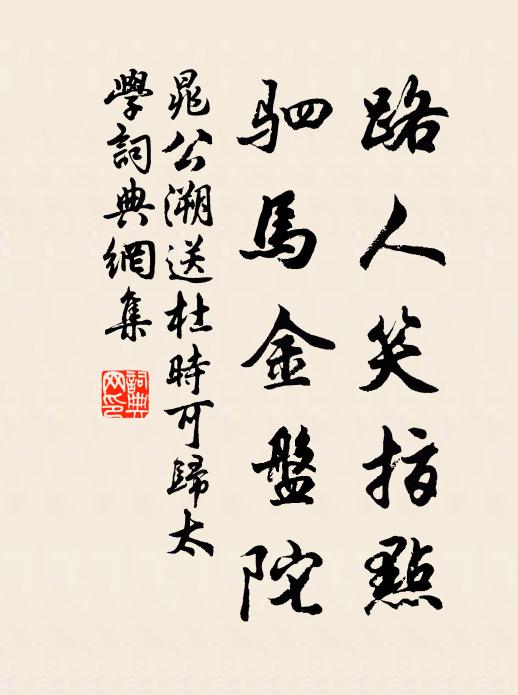 路人笑指點
駟馬金盤陀
晁公溯送杜時可歸太
學詞典網集
詞典
网印